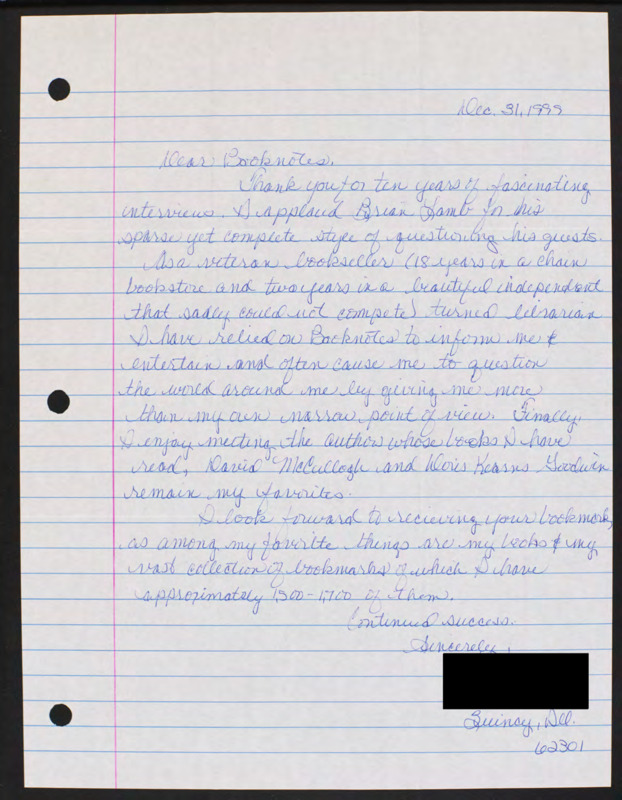 Dec. 31, 1999
Dear Booknotes,
Thank you for ten years of fascinating
interviews. I applaud Brian Lamb for his
sparse yet complete style of questioning his guests.
As a veteran bookseller (18 years in a chain
bookstore and two years in a beautiful independent
that sadly could not compete) turned librarian
I have relied on Booknotes to inform me &
entertain and often cause me to question
the world around me by giving me more
than my own narrow point of view. Finally
I enjoy meeting the authors whose books I have
read, David McCullogh and Doris Kearns Goodwin
remain my favorites.
I look forward to recieving your bookmark,
as among my favorite things are my books & my
vast collection of bookmarks of which I have
approximately 1500-1700 of them.
Continued success.
Sincerely,
Quincy, Ill.
62301